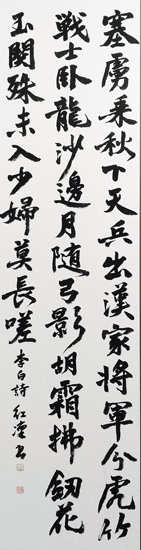 塞虜乗秋下天兵出漢家将軍分虎竹
戦士臥龍沙邊月随弓影胡霜拂釼花
玉関殊未入少婦莫長嗟 李白詩 紅